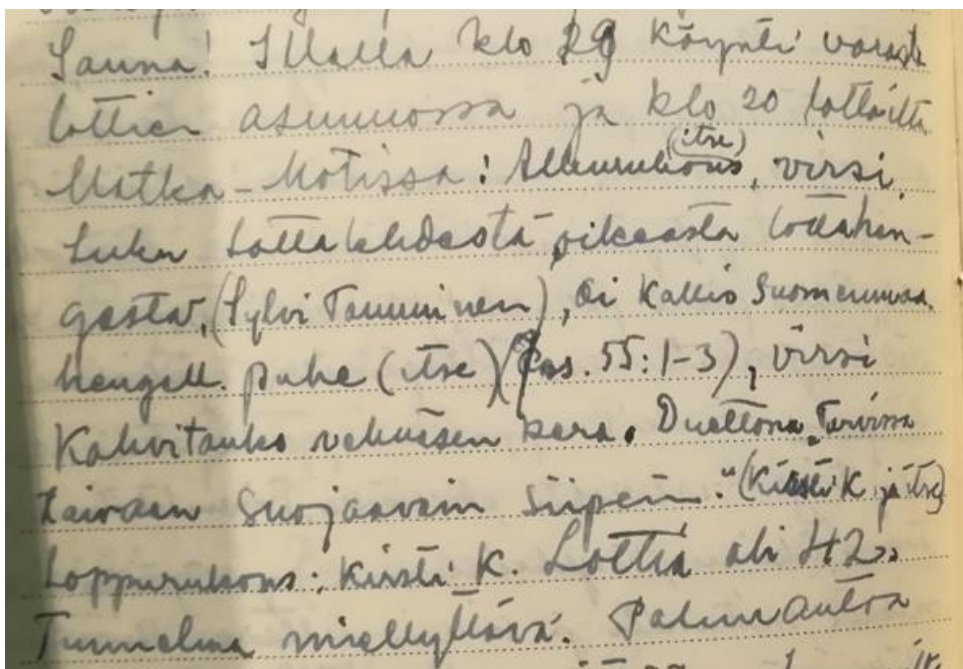 Sauna! Illalla klo 19 käynti varasto
lottien asunnossa ja klo 20 lottailta
Matka-Motissa: Alkurukous (itse), virsi,
Luku Lottalehdestä oikeasta lottahen-
gestä, (Sylvi Tamminen), Oi Kallis Suomenmaa.
hengell. puhe (itse) (Jes. 55:1-3), virsi
Kahvitauko vehnäsen kera. Duettona "Turvissa
taivaan suojaavain siipein." (Kirsti K. ja itse)
Loppurukous: Kirsti K. Lottia oli 42.
Tunnelma miellyttävä. Paluu autoa